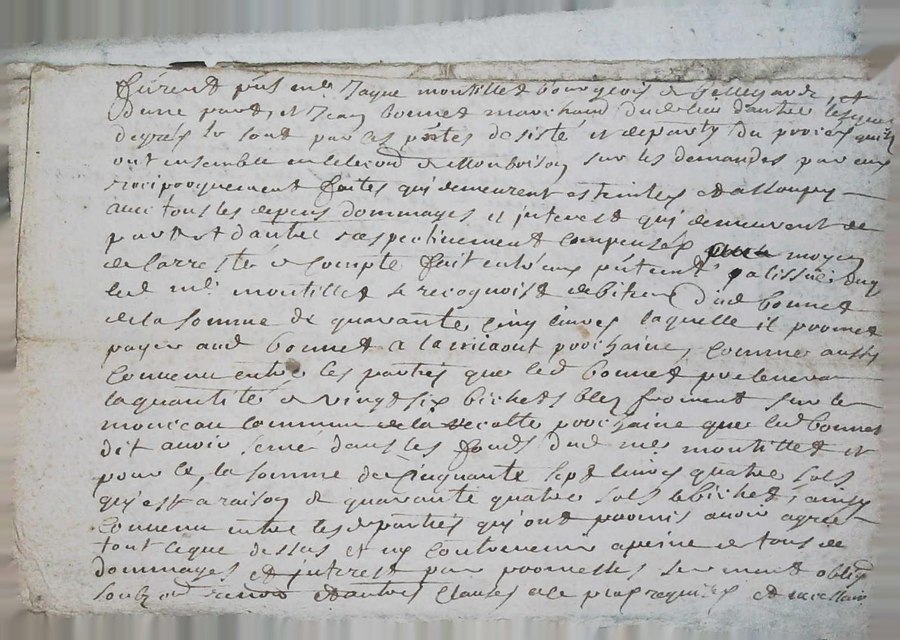 furent pnts mre Jaque montillet bourgeois de bellegarde
dune part, et Jean bonnet marchand dud lieu dautre lesquels
de gres se sont par ces pntes desisté et departy du proces quils
ont ensemble sur les demandes par eux
reciproquement faites qui demeurent esteintes et assoupy
avec tous les depens dommages et interest qui demeurent de
part et dautre respectivement compensés moyen
de larresté de compte fait entreux
led mre montillet se recognoist debiteur dud bonnet
de la somme de quarante cinq livres laquelle il promet
payer aud bonnet a la miaout prochaine, comme aussy
convenu entre les parties que led bonnet prelevera
la quantité de vingt six bichets bled froment sur le
monceau commun de la recolte prochaine que led bonnet
dit avoir semé dans les fonds dud mre montillet et
pour ce, la somme de cinquante sept livres quatre sols
qui est a raison de quarante quatre sols le bichet, ainsy
convenu entre lesd parties qui ont promis avoir agreé
tout ceque dessus et ny contrevenir a peine de tous
dommages et interest par promesses serment oblig
soubz et autres clauses de plus requises et necessaires